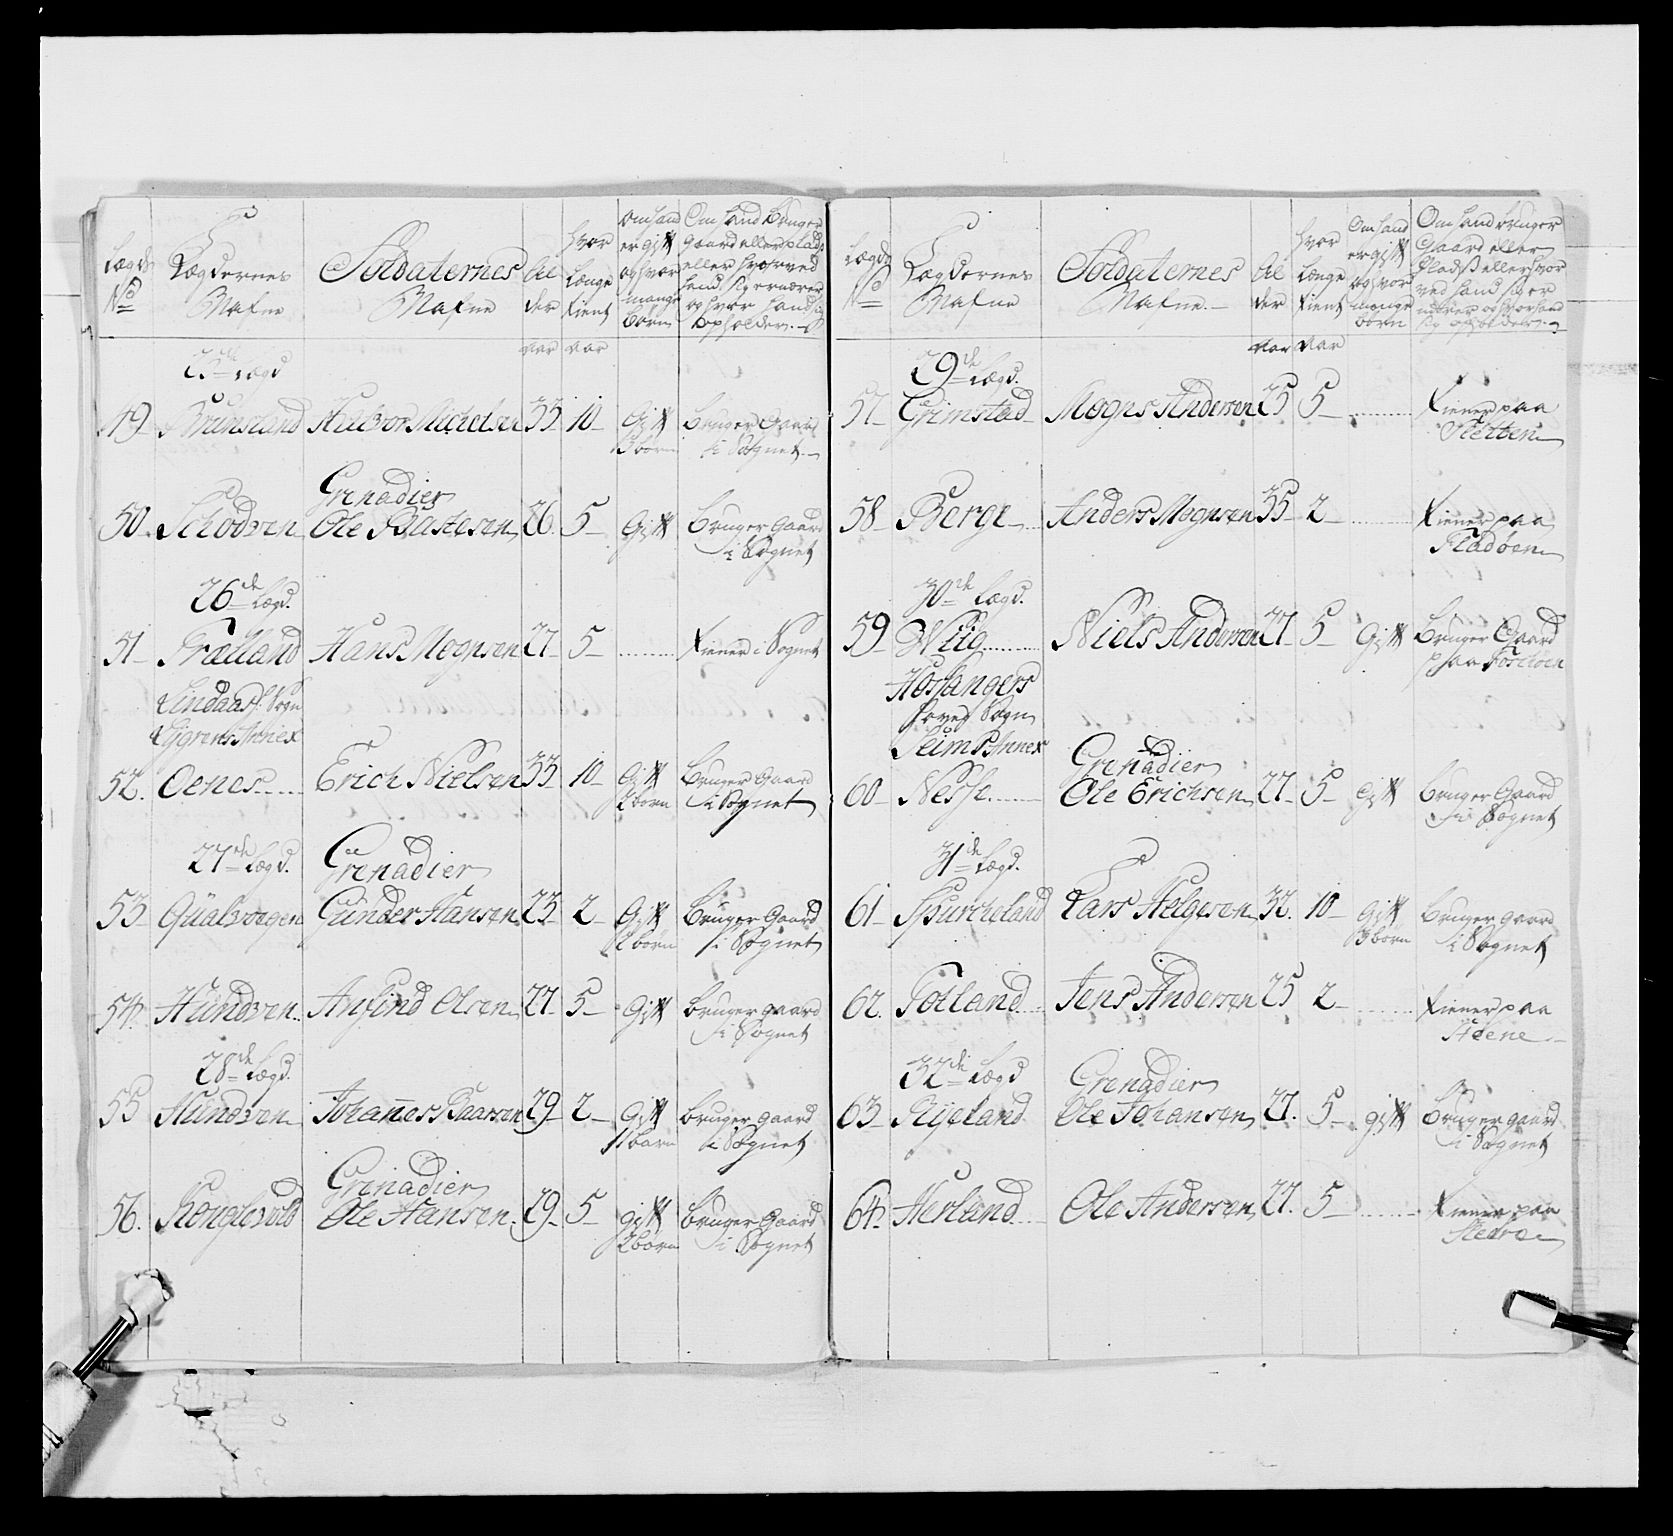 Lægds No
Lægdernes Nafne
Soldaternes Nafne
Alder
Hvor længe tient
Om hand er gift og hvor mange børn
Om hand bruger Gaard eller plads eller hvorved hand sig ernærer og hvor hand sig opholder
aar aar
25de Lægd
49 Halvor Michelsen 33 10 Gift 3 børn bruger Gaard i Sognet
Grenadier
50 Schodven Ole Bastesen 26 5 Gift bruger Gaard i Sognet
26de Lægd.
51 Frælland Hans Mognsen 27 5 tiener i Sognet
Lindaas Sogn
Annex
52. Oenes Erich Nielsen 33 10 Gift 2 børn bruger Gaard i Sognet
27de Lægd. Grenadier
53 Qualvogen Gunder Hansen 23 2 Gift 2 børn bruger Gaard i Sognet
54. Hundven Anfind Olsen 27 5 Gift bruger gaard i Sognet
28de Lægd.
55 Hundven Johannes Baarsen 29 2 Gift 1 barn bruger gaard i Sognet
Grenadier
56. Konglevold Ole Hansen 29 5 gift 2 børn bruger Gaard i Sognet
Lægds No
Lægdernes Nafne
Soldaternes Nafne
Alder
Hvor længe tient
Om hand er gift og hvor mange børn
Om hand bruger Gaard eller Pladß eller hvor ved hand sig er nærer og hvor hand sig opholder
aar aar
29de Lægd.
57 Grimstad Mogns Andersen 25 5 tiener paa Sletten
58 Berge Anders Mognsen 35 2 tiener paa Fladøen
30de Lægd.
59 Wiig Niels Andersen 27 5 Gift bruger Gaard paa
Hosangers
hoved Sogn
Seims Annex
Grenadier
60 Nesse Ole Erichsen 27 5 gift bruger Gaard i Sognet
31de Lægd.
61 Spurcheland Lars Helgesen 32. 10 gift 3 børn bruger gaard i Sognet
62. Totland Jens Andersen 25 2 tiener paa
32de Lægd Grenadier
63 Ryeland Ole Johansen 27. 5 gift bruger gaard i Sognet
64. Herland Ole Andersen 27. 5 tiener paa